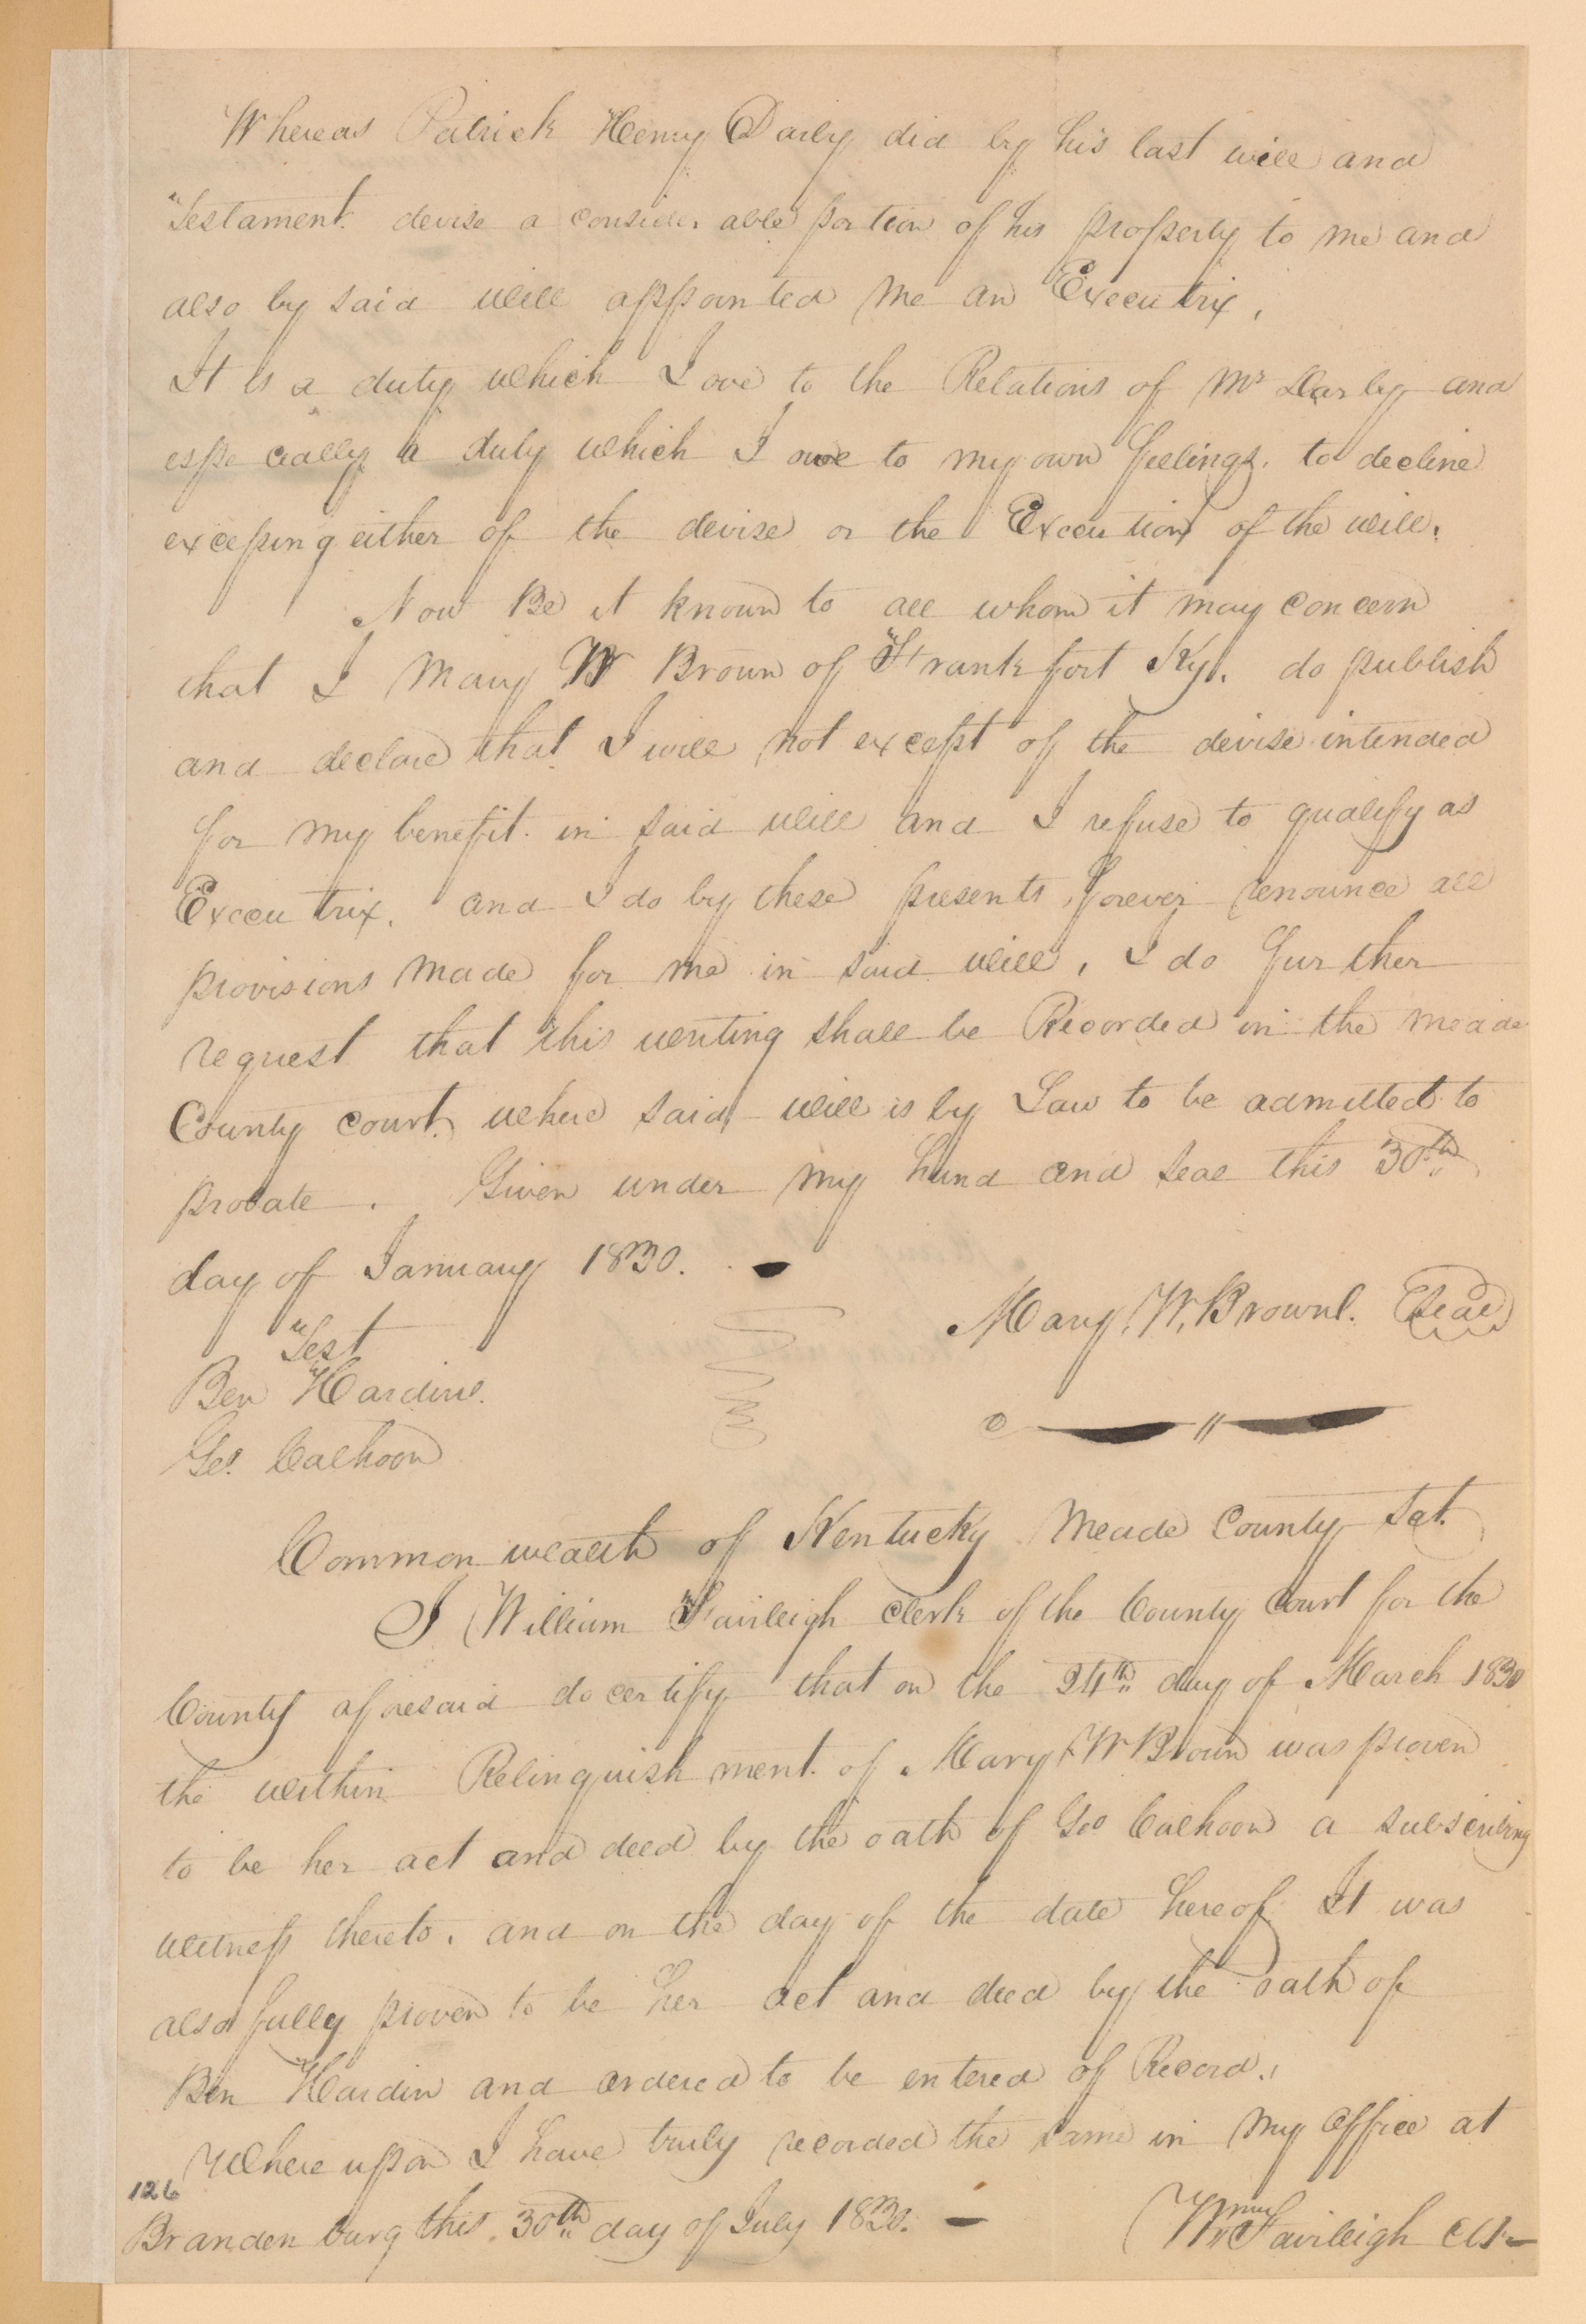 Whereas Patrick Henry Darby did by his last will and
Testament devise a considerable portion of his property to me and
also by said will appointed me an Executrix,
It is a duty which I owe to the Relations of Mr Darby and
especially a duty which I owe to my own feelings. to decline
exceping either of the devise or the Execution of the will.
Now Be it known to all whom it may concern
that I Mary W Brown of Frankfort Ky. do publish
and declare that I will not except of the devise intended
for my benefit in said will and I refuse to qualify as
Executrix. and I do by these presents forever renounce all
provisions made for me in said will, I do further
request that this writing shall be Recorded in the meade
County court where said will is by Law to be admitted to
probate. Given under my hand and seal this 30th
day of January 1830. -
Mary W. Brown. Seal
Test
Ben Hardin.
Geo. Calhoon
Commonwealth of Kentucky Meade County Sct.
I William Fairleigh clerk of the County Court for the
County aforesaid do certify that on the 24th day of March 1830
the within Relinquishment of Mary W Brown was proven
to be her act and deed by the oath of Geo Calhoon a subscribing
witness thereto. and on the day of the date hereof It was
also fully proven to be her act and deed by the oath of
Ben Hardin and ordered to be entered of Record.
Where upon I have truly recorded the same in my office at
126
Brandenburg this 30th day of July 1830. -
Wm Fairleigh Clk